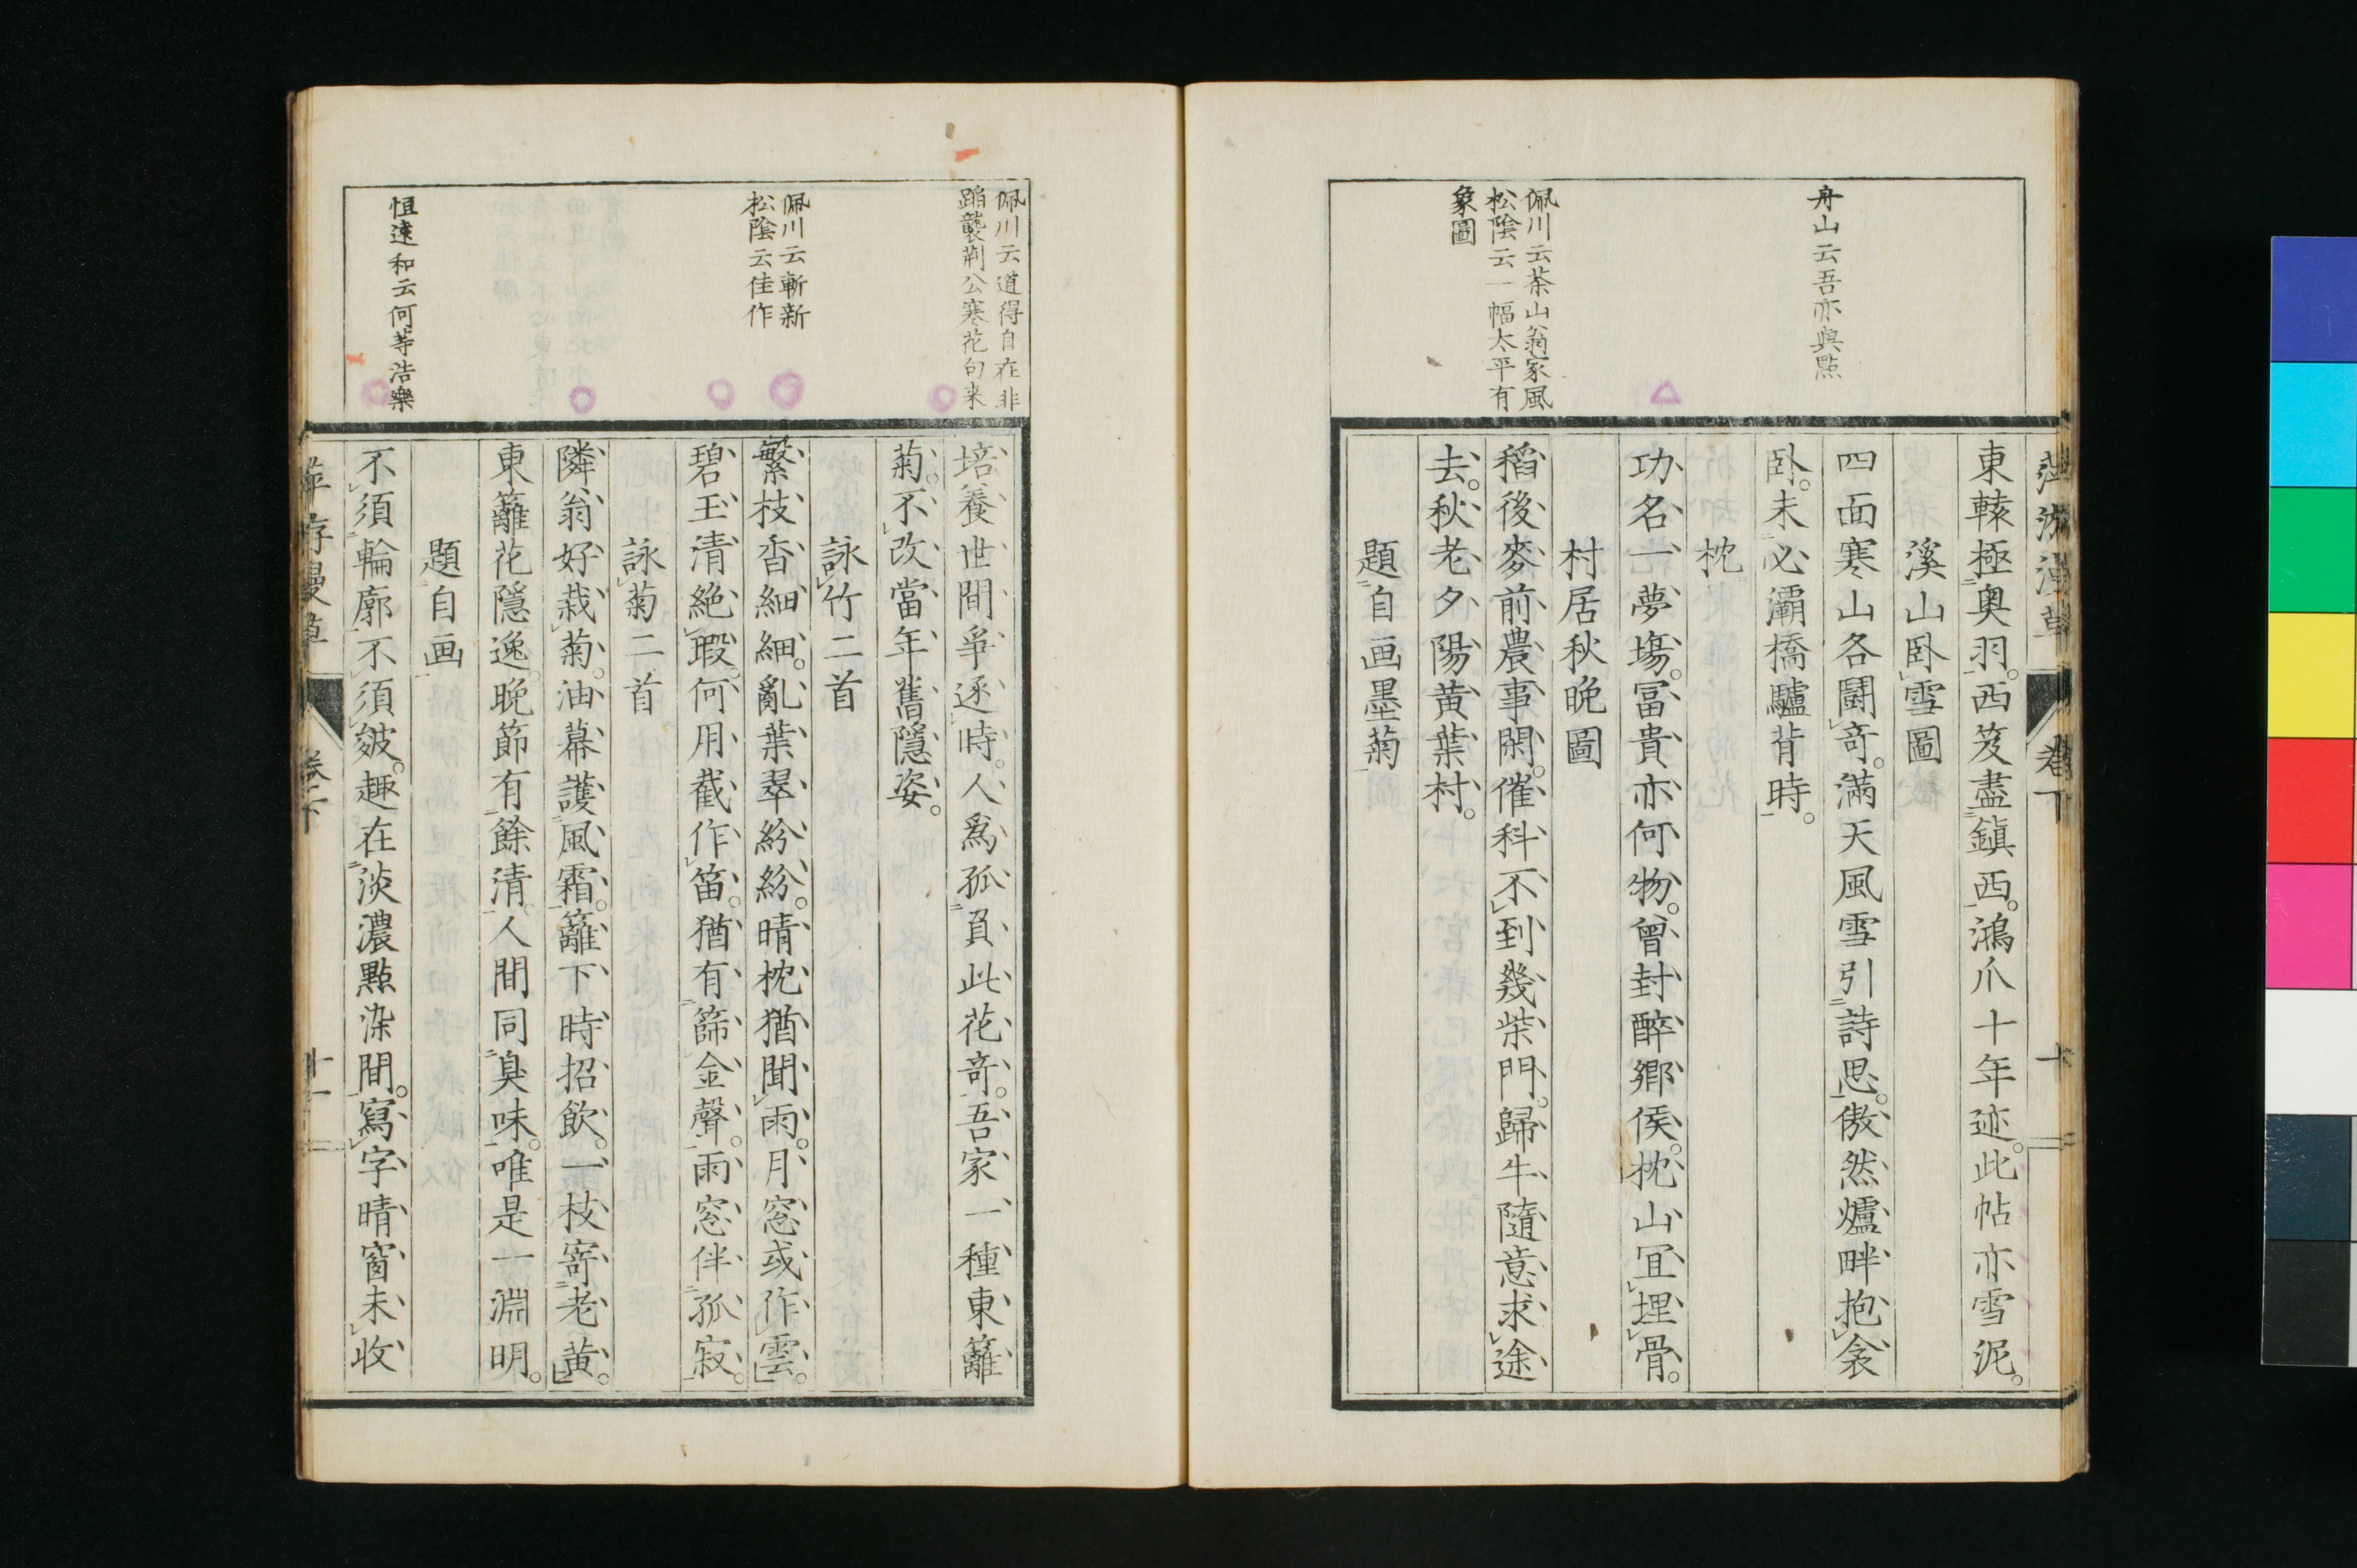 舟山云吾亦與點
佩川云茶山翁家風
松陰云一幅太平有
象圖
東轅極奧羽。西笈盡鎮西。鴻爪十年迹。此帖亦雪泥。
溪山臥雪圖
四面寒山各鬪奇。滿天風雪引詩思。傲然爐畔抱衾
卧。未必灞橋驢背時。
枕
功名一夢塲。冨貴亦何物。曾封醉鄉侯。枕山冝埋骨。
村居秋晚圖
稻後麥前農事閑。催科不到幾柴門。歸牛隨意求途
去。秋老夕陽黄葉村。
題自画墨菊
卷下
十
佩川云道得自在非
蹈襲荊公寒花句来
佩川云斬新
松陰云佳作
恒遠和云何等浩樂
培養世間爭逐時。人爲孤負此花奇。吾家一種東籬
菊。不改當年舊隱姿。
詠竹二首
繁枝香細細。亂葉翠紛紛。晴枕猶聞雨。月窓或作雲。
碧玉清絶瑕。何用截作笛。猶有篩金聲。雨窓伴孤寂。
詠菊二首
隣翁好栽菊。油幕護風霜。籬下時招飲。一枝寄老黄。
東籬花隱逸。晚節有餘清。人間同臭味。唯是一淵明。
題自画
不須輪廓不須皴。趣在淡濃點染間。寫字晴窗未收
萍游漫草
卷下
十一